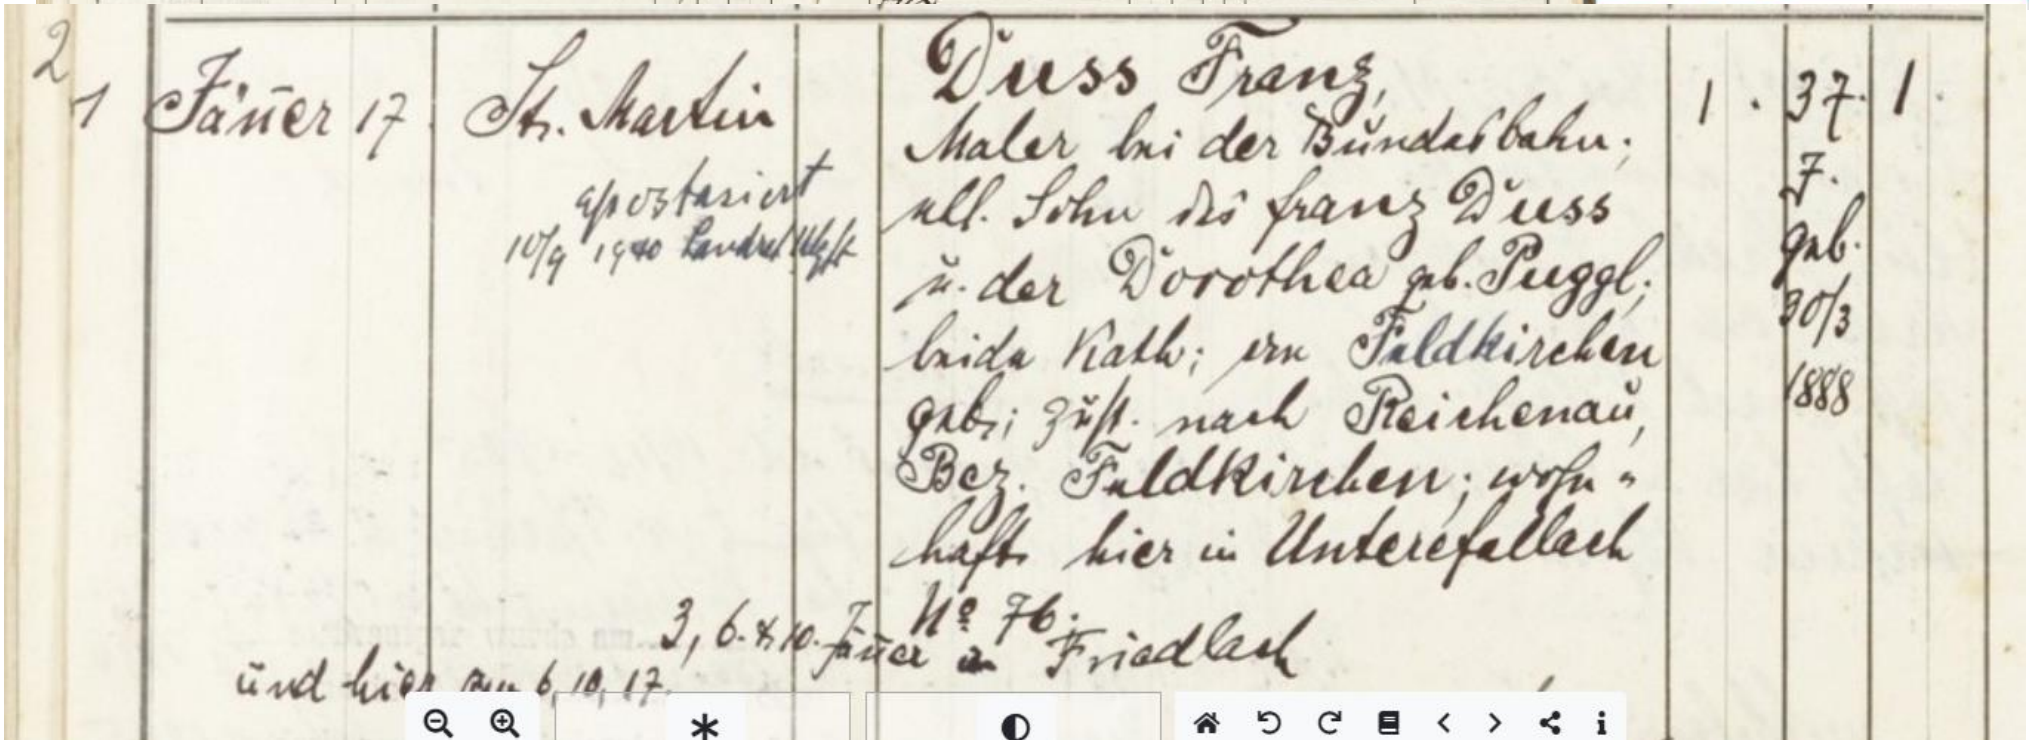 2
1 Jäner 17. St. Martin
apostasiert
10/9 1940
Duss Franz,
Maler bei der Bundesbahn;
ell. Sohn des Franz Duss
u. der Dorothea geb. Puggl;
beide Kath; in Feldkirchen
geb.; zust. nach Reichenau,
Bez. Feldkirchen; wohn=
haft hier in Unterefellach
No 76.
1. 37. 1.
7.
geb.
30/3
1888
3, 6. & 10. Jäner in Friedlach
und hier am 6, 10, 17.